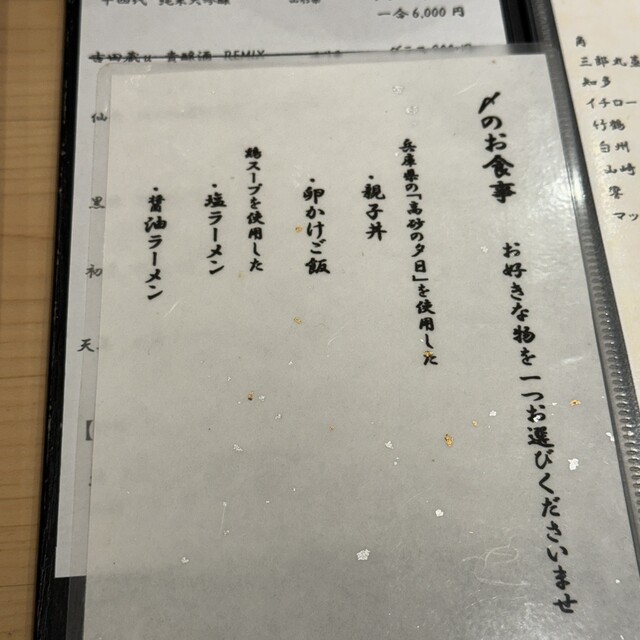 〆のお食事
お好きな物を一つお選びくださいませ
兵庫県の「高砂の夕日」を使用した
・親子丼
・卵かけご飯
鶏スープを使用した
・塩ラーメン
・醤油ラーメン
十四代 純米大吟醸
一合6,000円
貴醸酒 REMIX
仙
黒
初
天
角
三郎丸蒸
知多
イチロー
竹鶴
白州
山崎
響
マッ